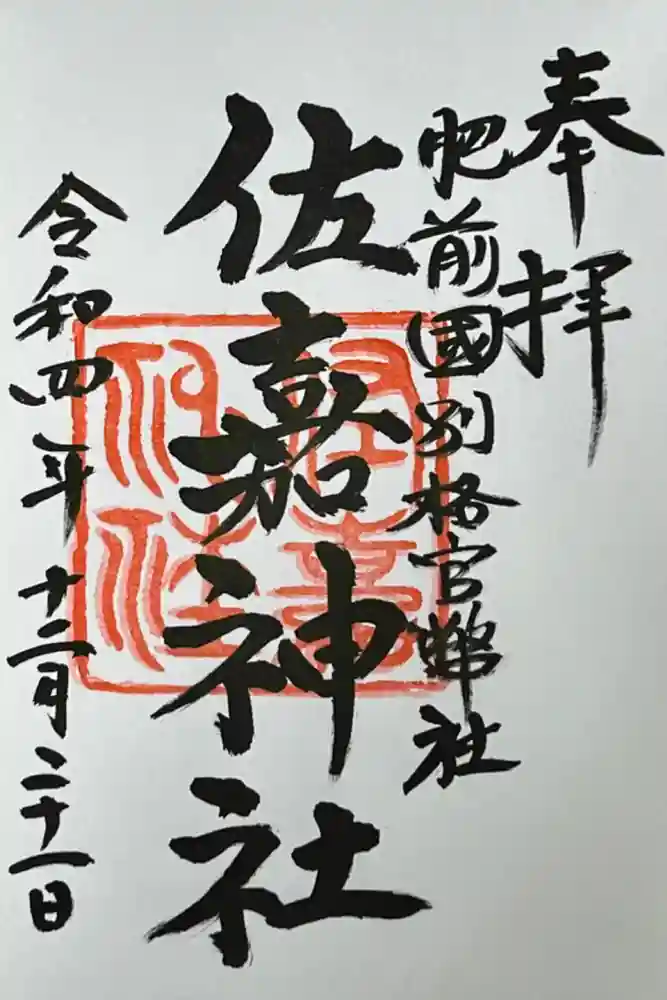 奉拝
肥前國別格官幣社
佐嘉神社
佐嘉神社
令和四年十二月二十一日